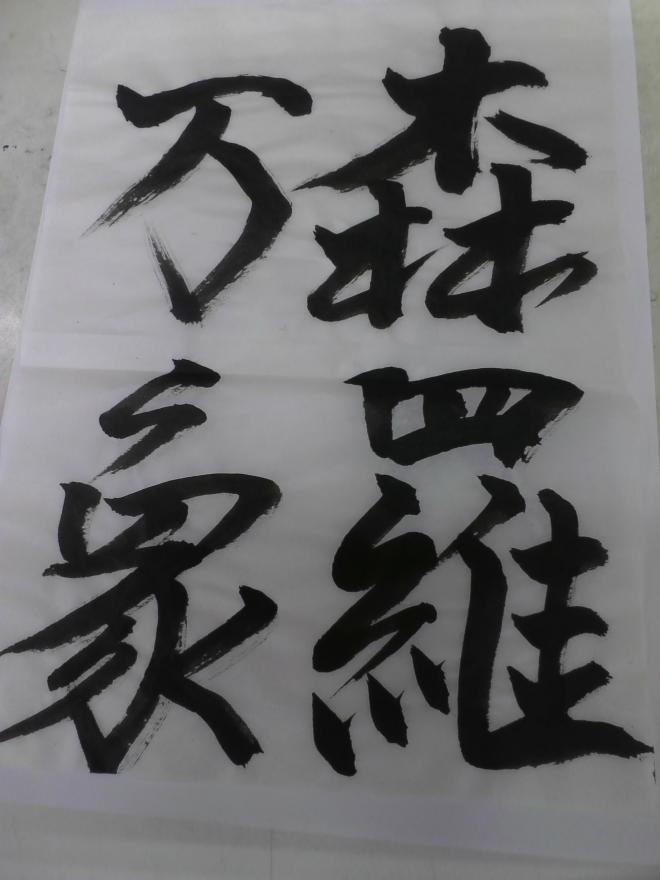 森羅
万象